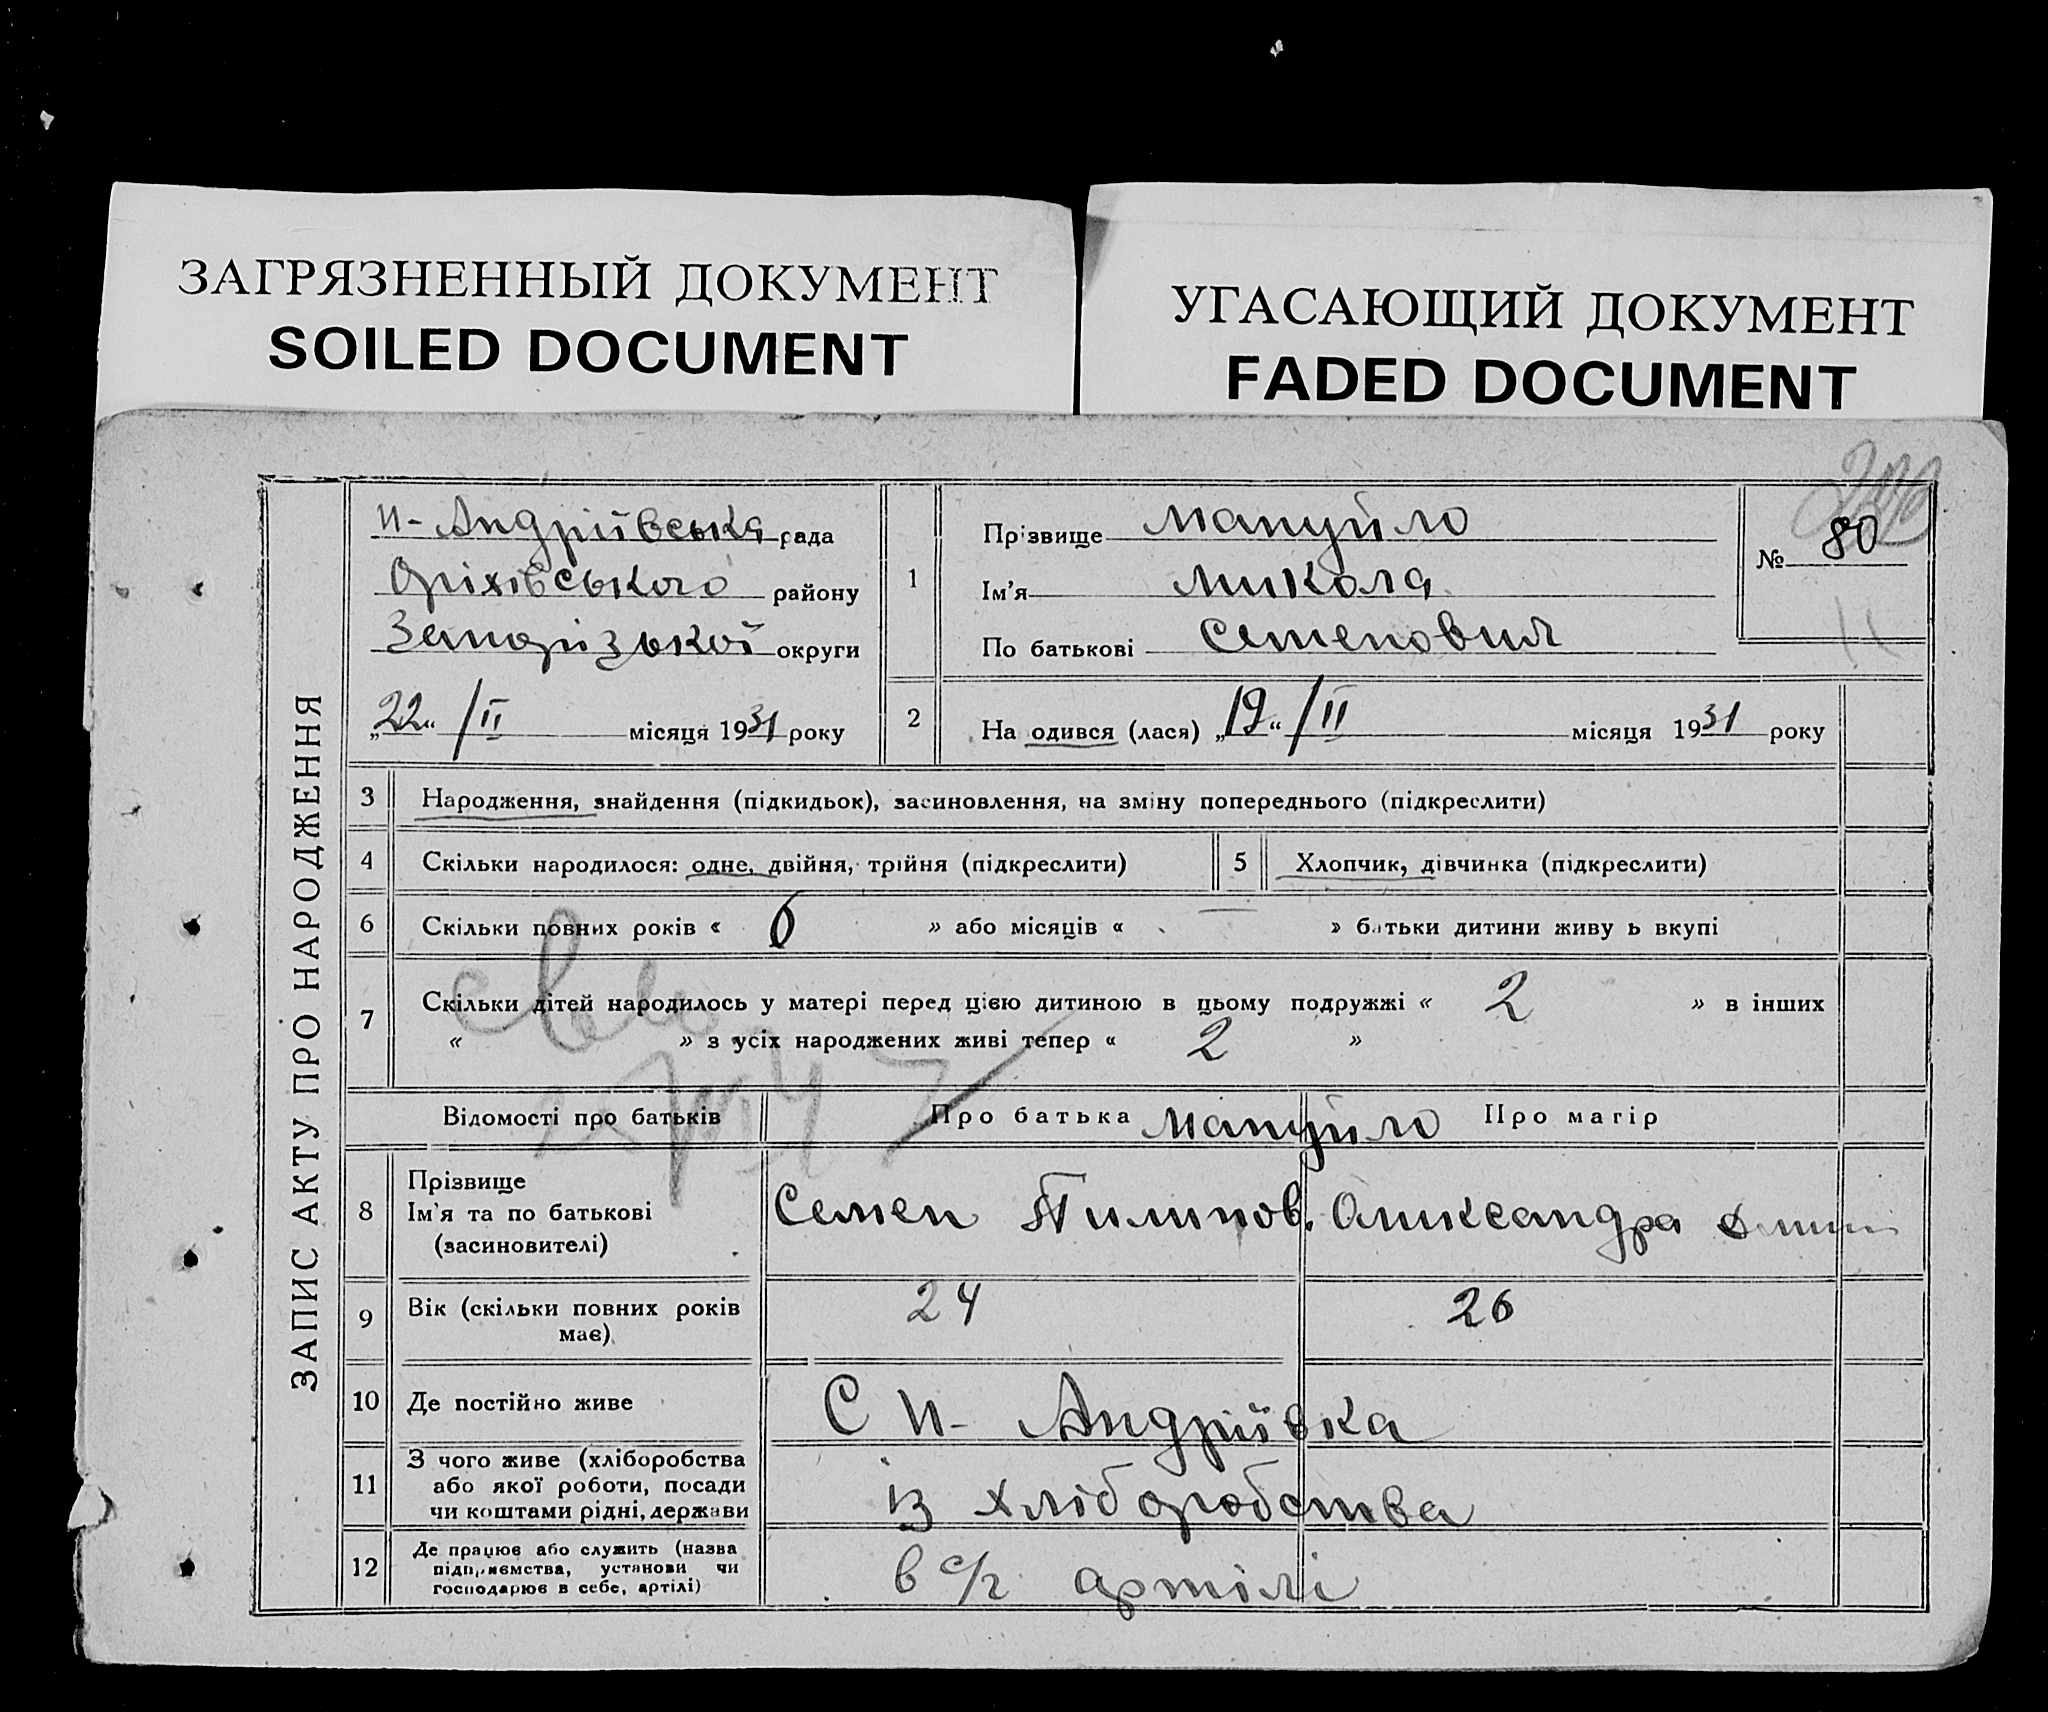 ЗАГРЯЗНЕННЫЙ ДОКУМЕНТ
SOILED DOCUMENT
УГАСАЮЩИЙ ДОКУМЕНТ
FADED DOCUMENT
ЗАПИС АКТУ ПРО НАРОДЖЕННЯ
Н-Андріївська рада
Оріхівського району
Запорізької округи
„22“ /II місяця 1931 року
1
Прізвище Мануйло
Ім'я Микола
По батькові Семенович
№ 80
2
На одився (лася) „19“ /II місяця 1931 року
3 Народження, знайдення (підкидьок), засиновлення, на зміну попереднього (підкреслити)
4 Скільки народилося: одне, двійня, трійня (підкреслити)
5 Хлопчик, дівчинка (підкреслити)
6 Скільки повних років « 6 » або місяців « — » батьки дитини живу ь вкупі
7 Скільки дітей народилось у матері перед цією дитиною в цьому подружжі « 2 » в інших
« » з усіх народжених живі тепер « 2 »
Відомості про батьків Про батька Мануйло Про матір
8 Прізвище
Ім'я та по батькові
(засиновителі)
Семен Пилипов. Олександра
9 Вік (скільки повних років
має)
24 26
10 Де постійно живе С Н- Андріївка
11 З чого живе (хліборобства
або якої роботи, посади
чи коштами рідні, держави
із хліборобства
12 Де працює або служить (назва
підприємства, установи чи
господарює в себе, артілі)
в с/г артілі